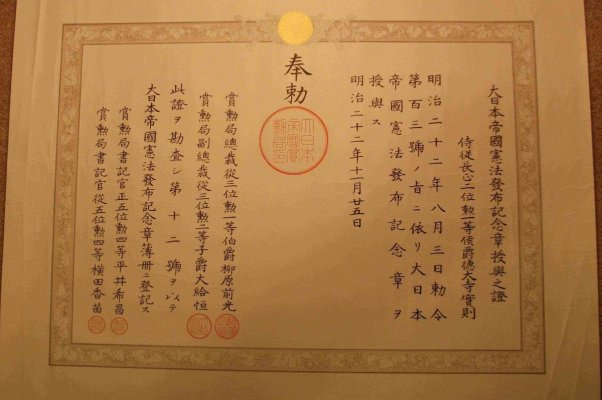 大日本帝國憲法發布記念章授與之證
侍從長正二位勲一等侯爵德大寺實則
明治二十二年八月三日勅令
第百三號ノ旨ニ依リ大日本
帝國憲法發布記念章ヲ
授與ス
明治二十二年十一月廿五日
奉勅
大日本
帝國賞
勲局印
賞勲局總裁從二位勲一等伯爵柳原前光
賞勲局副總裁從三位勲二等子爵大給恒
此證ヲ勘査シ第十二號ヲ以テ
大日本帝國憲法發布記念章簿册ニ登記ス
賞勲局書記官正五位勲四等平井希昌
賞勲局書記官從五位勲四等横田香苗